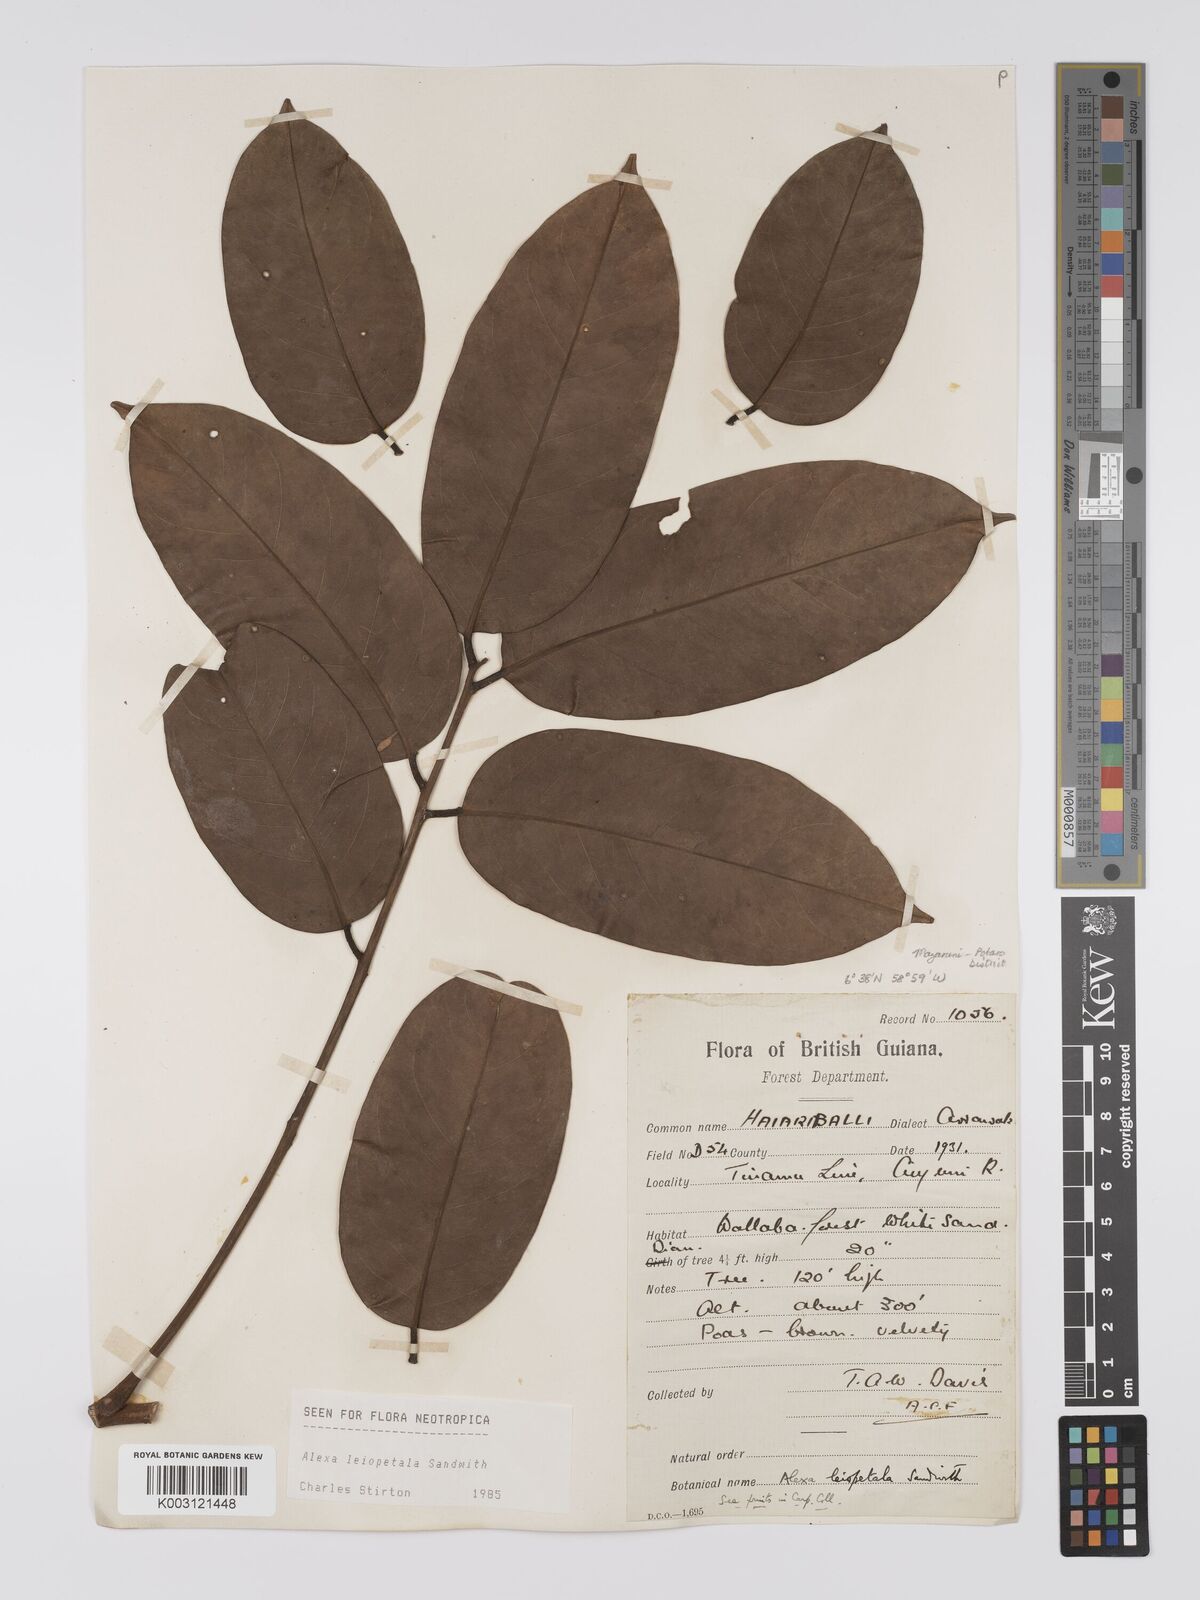 P
Mazaruni-Potaro
District
6° 38'N 58° 59' W
Record No. 1056.
Flora of British Guiana.
Forest Department.
Common name HAIARIBALLI Dialect Arrawak
Field No. D54 County Date 1931.
Locality Tinamu Line, Cuyuni R.
Habitat Wallaba forest White Sand.
Diam.
Girth of tree 4½ ft. high 20"
Notes Tree. 120' high
Alt. about 300'
Pods - brown. velvety
Collected by T.A.W. Davis
A.C.F
Natural order
Botanical name Alexa leiopetala Sandwith
See fruits in Carp. Coll.
D.C.O.—1,695
SEEN FOR FLORA NEOTROPICA
Alexa leiopetala Sandwith
Charles Stirton 1985
ROYAL BOTANIC GARDENS KEW
K003121448
inches
centimeters
Density
Don Williams
M000857
Royal Botanic Gardens
Kew
copyright reserved
0 1 2 3 4 5 6 7 8 9 10
cm